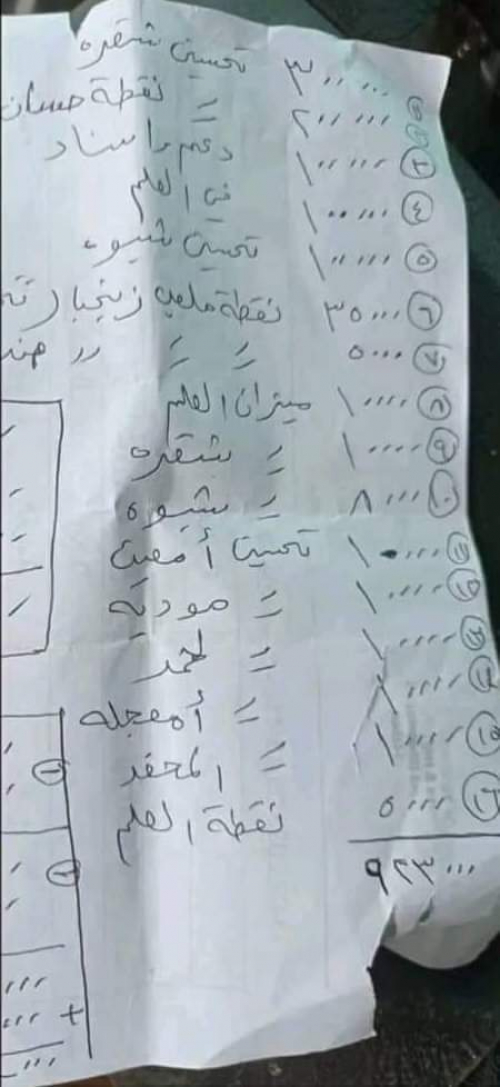 ٣٠٠٠٠٠ تحسين شقره
٢٠٠٠٠٠ 〃 نقطة حسان
③ ١٠٠٠٠٠ دعم واسناد
④ ١٠٠٠٠٠ العلم
⑤ ١٠٠٠٠٠ تحسين شبوه
⑥ ٣٥٠٠٠ نقطة ملعب زنجبار
⑦ ٥٠٠٠ 〃 〃 〃
⑧ ١٠٠٠٠ ميزان العلم
⑨ ١٠٠٠٠ 〃 شقره
⑩ ٨٠٠٠ 〃 شبوه
⑪ ١٠٠٠٠ تحسين أمعين
⑫ ١٠٠٠٠ 〃 موديه
⑬ ١٠٠٠٠ 〃 لحمر
⑭ ١٠٠٠٠ 〃 أمعجله
⑮ ١٠٠٠٠ 〃 المحفد
⑯ ٥٠٠٠ نقطة العلم
٩٢٣٠٠٠